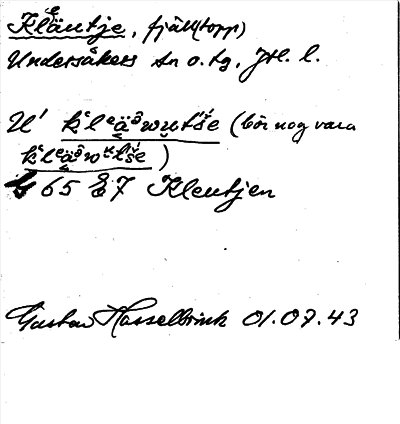 Kläntje, fjäll(topp)
Undersåkers sn o. tg, Jtl. l.
U' k‛lᵉä̯ᵊwu̯tʹšé (bör nog vara
k‛lᵉä̯ᵊwᴷtʹšé)
65 E7 Klentjen
Gustav Hasselbrink 01.07.43